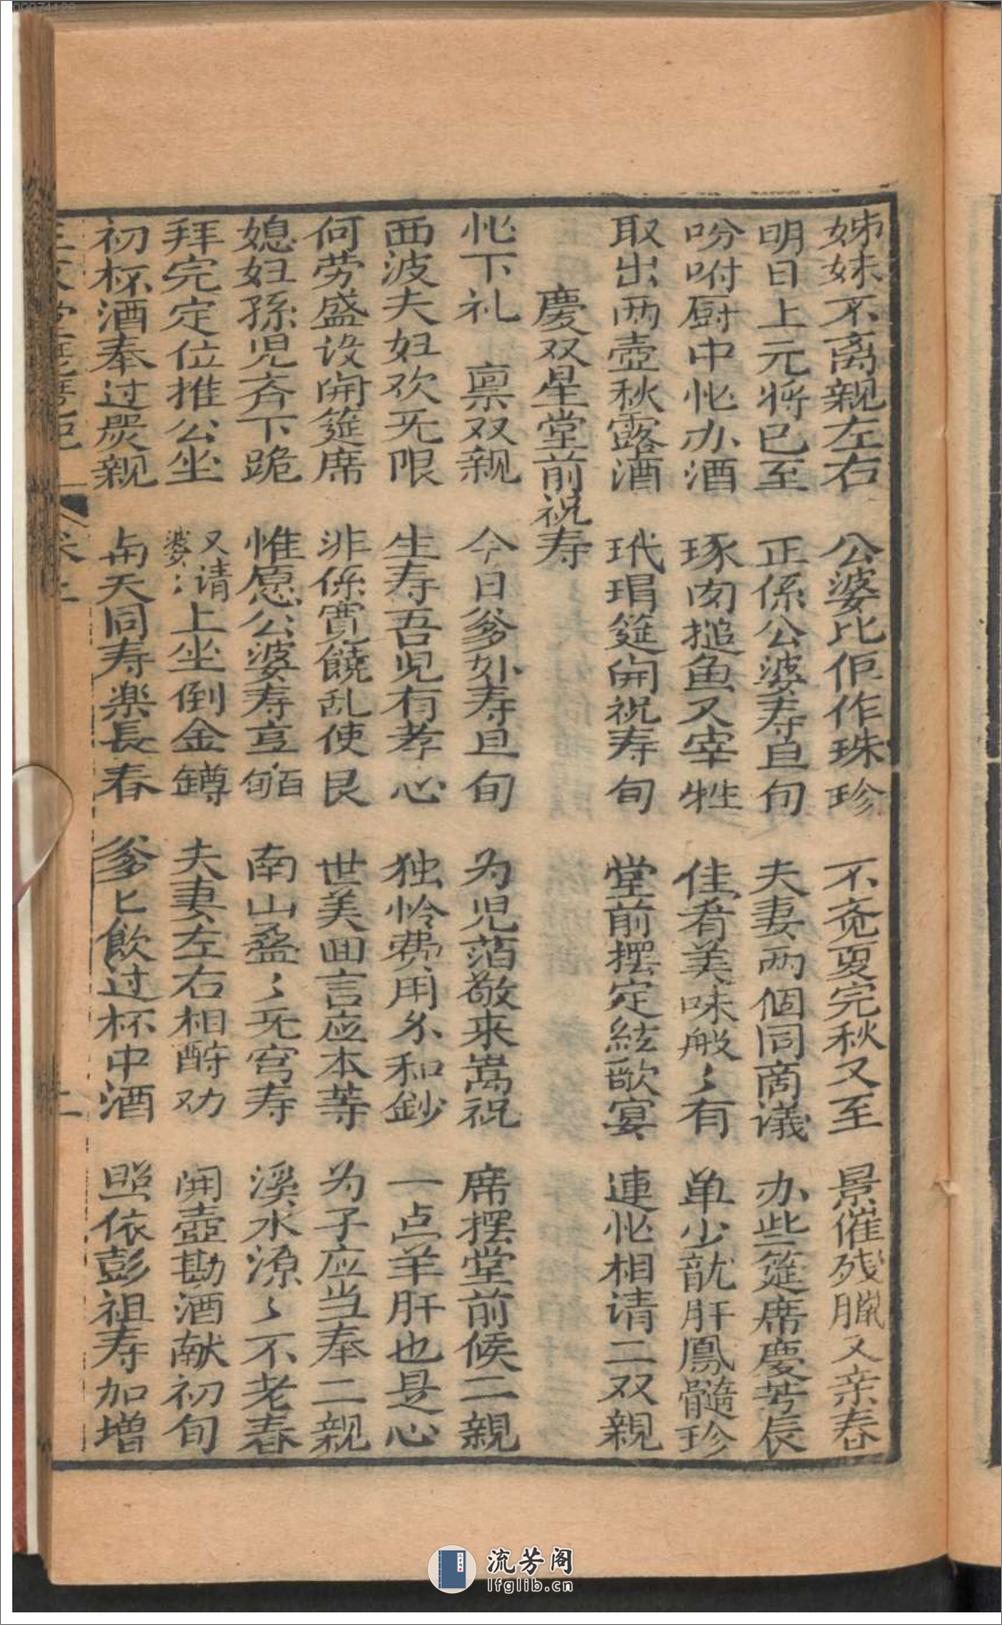 姊妹不离亲左右 公婆比佢作珠珍 不竟夏完秋又至 景催残臘又亲春
明日上元将已至 正係公婆寿旦旬 夫妻两個同商议 办些筵席慶芳辰
吩咐厨中忙办酒 琢肉搥鱼又宰牲 佳肴美味般〻有 单少龍肝鳳髓珍
取出两壺秋露酒 玳瑁筵開祝寿旬 堂前摆定絃歌宴 連忙相请二双親
慶双星堂前祝寿
忙下礼 禀双親 今日爹奶寿旦旬 为児敬来嵩祝 席摆堂前候二親
西波夫妇欢无限 生寿吾児有孝心 独怜费用糸和鈔 一点羊肝也是心
何劳盛设開筵席 非係寬饒乱使艮 世美回言应本等 为子应当奉二親
媳妇孫児齐下跪 惟愿公婆寿享 南山叠〻无穹寿 溪水源〻不老春
拜完定位推公坐 又请婆〻上坐倒金罇 夫妻左右相酧劝 開壺勘酒献初旬
初杯酒奉过嚴親 与天同寿樂長春 爹匕飲过杯中酒 照依彭祖寿加增
卷上
流芳阁
lfglib.cn